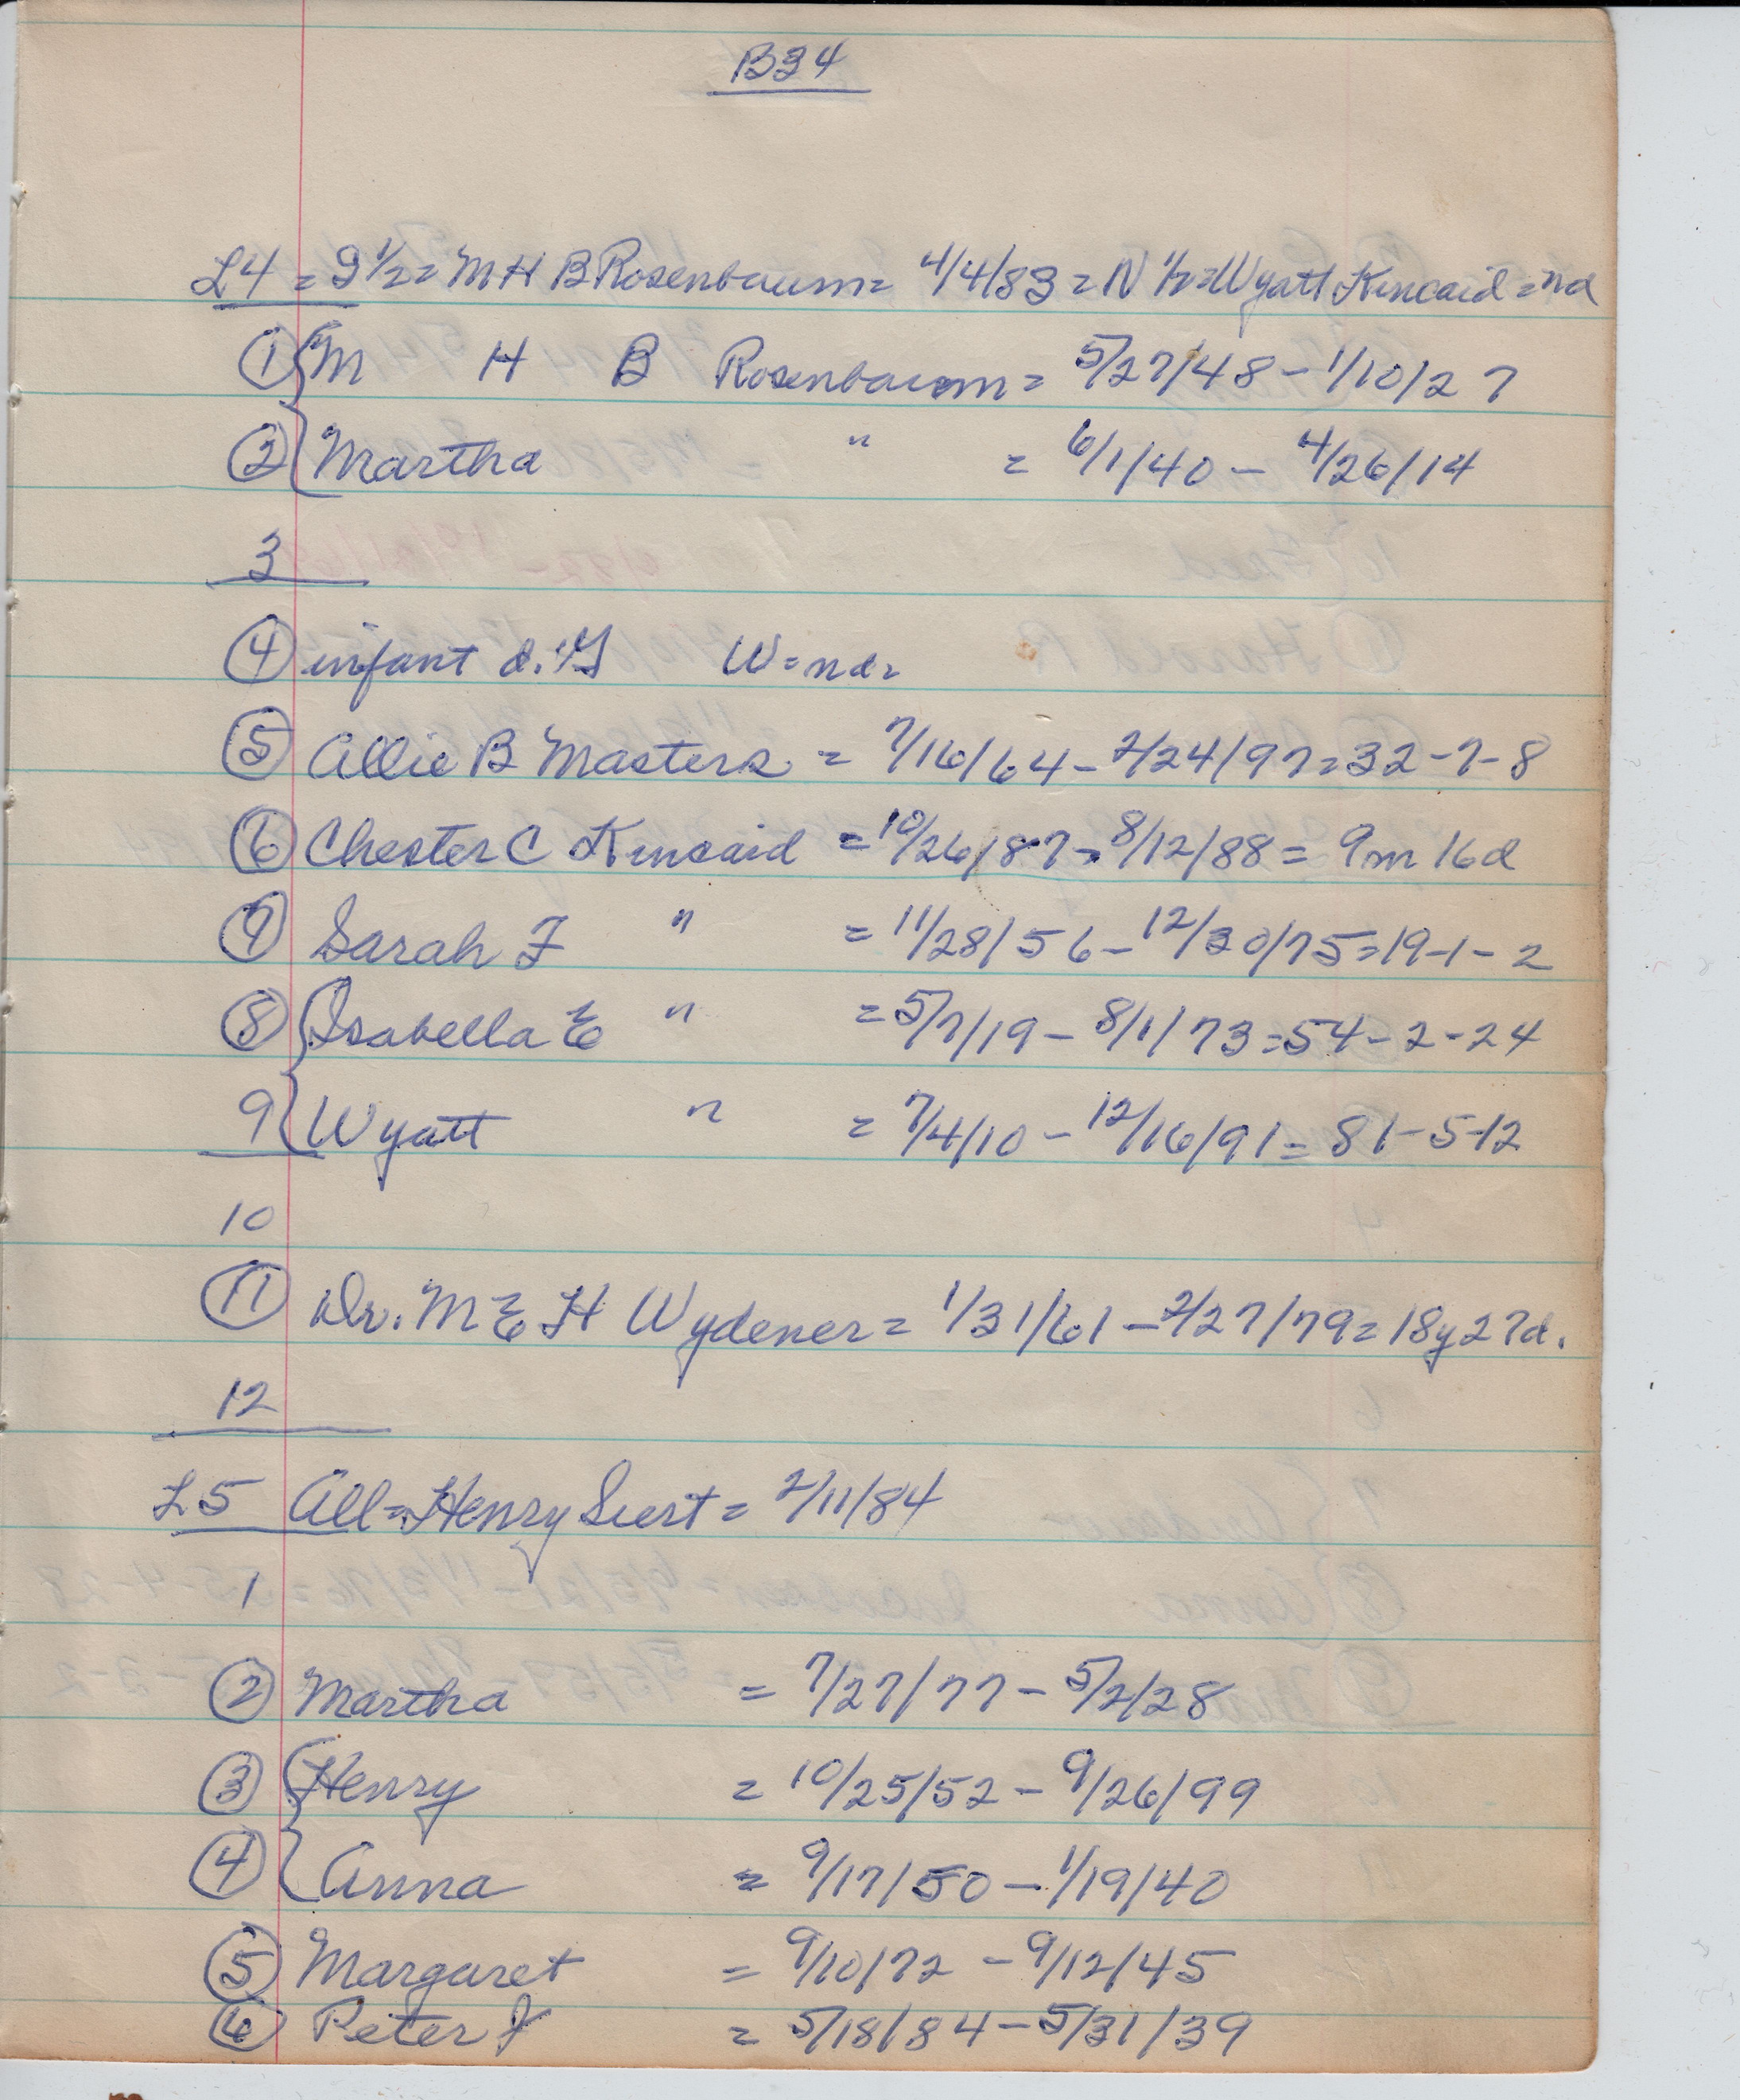 B34
L4 = S 1/2 = M H B Rosenbaum = 4/4/83 = N 1/2 = Wyatt Kincaid = nd
1 { M H B Rosenbaum = 5/27/48 - 1/10/27
2 { Martha " = 6/1/40 - 4/26/14
3
4 infant d. W = nd =
5 Allie B Masters = 7/16/64 - 2/24/97 = 32-7-8
6 Chester C Kincaid = 10/26/87 - 8/12/88 = 9m 16d
7 Sarah F " = 11/28/56 - 12/30/75 = 19-1-2
8 { Isabella E " = 5/7/19 - 8/1/73 = 54-2-24
9 { Wyatt " = 7/4/10 - 12/16/91 = 81-5-12
10
11 Dr. M E H Wydener = 1/31/61 - 2/27/79 = 18y 27d.
12
L5 All = Henry Siert = 2/11/84
1
2 Martha = 7/27/77 - 5/2/28
3 { Henry = 10/25/52 - 9/26/99
4 { Anna = 9/17/50 - 1/19/40
5 Margaret = 9/10/72 - 9/12/45
6 Peter J = 5/18/84 - 5/31/39